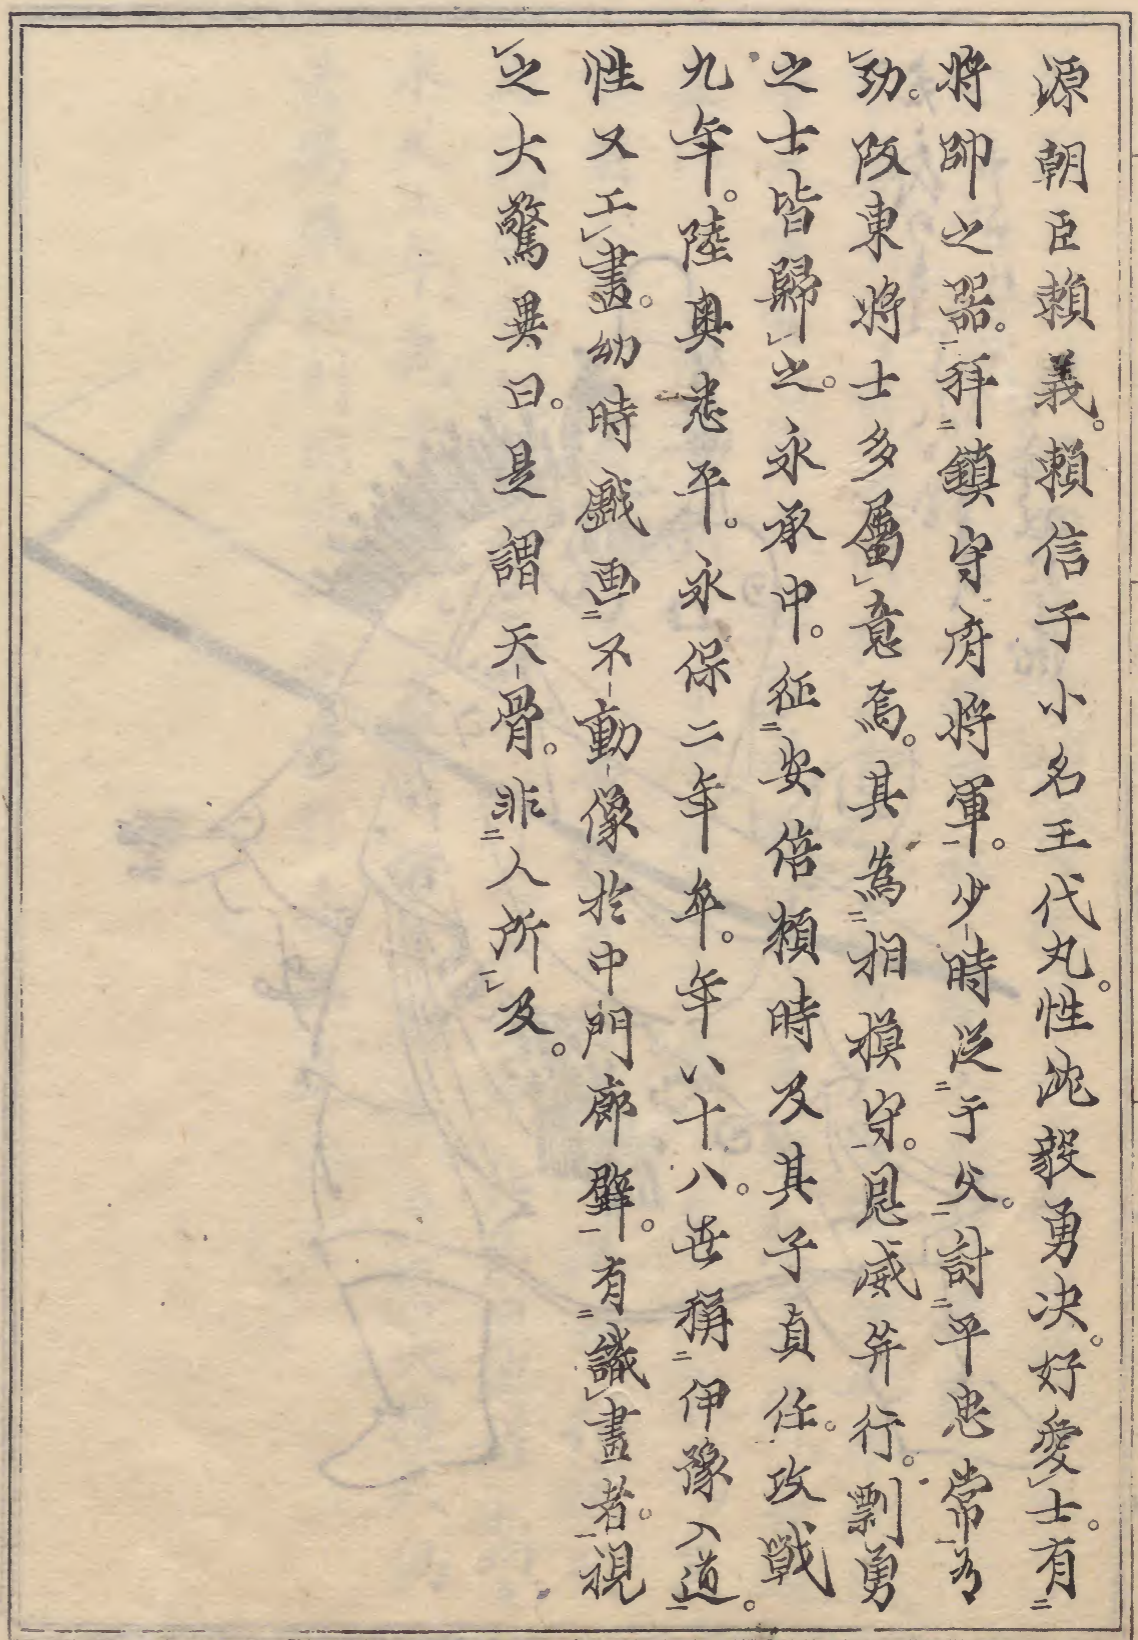 源朝臣賴義。賴信子小名王代丸。性沈毅勇决。好愛レ士。有二
將帥之器一。拜二鎮守府將軍一。少時從二于父一。討二平忠常一有
レ功。阪東將士多屬レ意焉。其為二相摸守一。恩威并行。剽勇
之士皆歸レ之。永承中。征二安倍賴時及其子貞任。攻戰
九年。陸奧悉平。永保二年卒。年八十八。世稱二伊豫入道一。
性又工レ畫。幼時戲画二不動像於中門廊壁一。有二識レ畫者一。視
レ之大驚異曰。是謂天骨。非二人所一レ及。